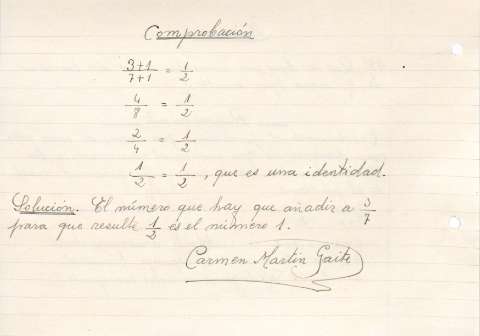 Comprobación
3+1/7+1 = 1/2
4/8 = 1/2
2/4 = 1/2
1/2 = 1/2, que es una identidad.
Solución. El número que hay que añadir a 3/7
para que resulte 1/2 es el número 1.
Carmen Martín Gaite